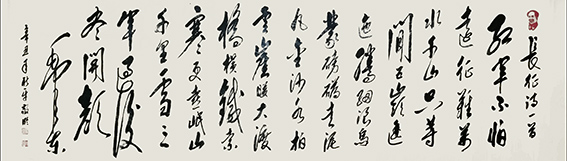 長征詩一首
紅軍不怕
遠征難萬
水千山只等
閒五嶺逶
迤騰細浪烏
蒙磅礴走泥
丸金沙水拍
雲崖暖大渡
橋橫鐵索
寒更喜岷山
千里雪三
軍過後
盡開顏
毛澤東
辛丑年秋月